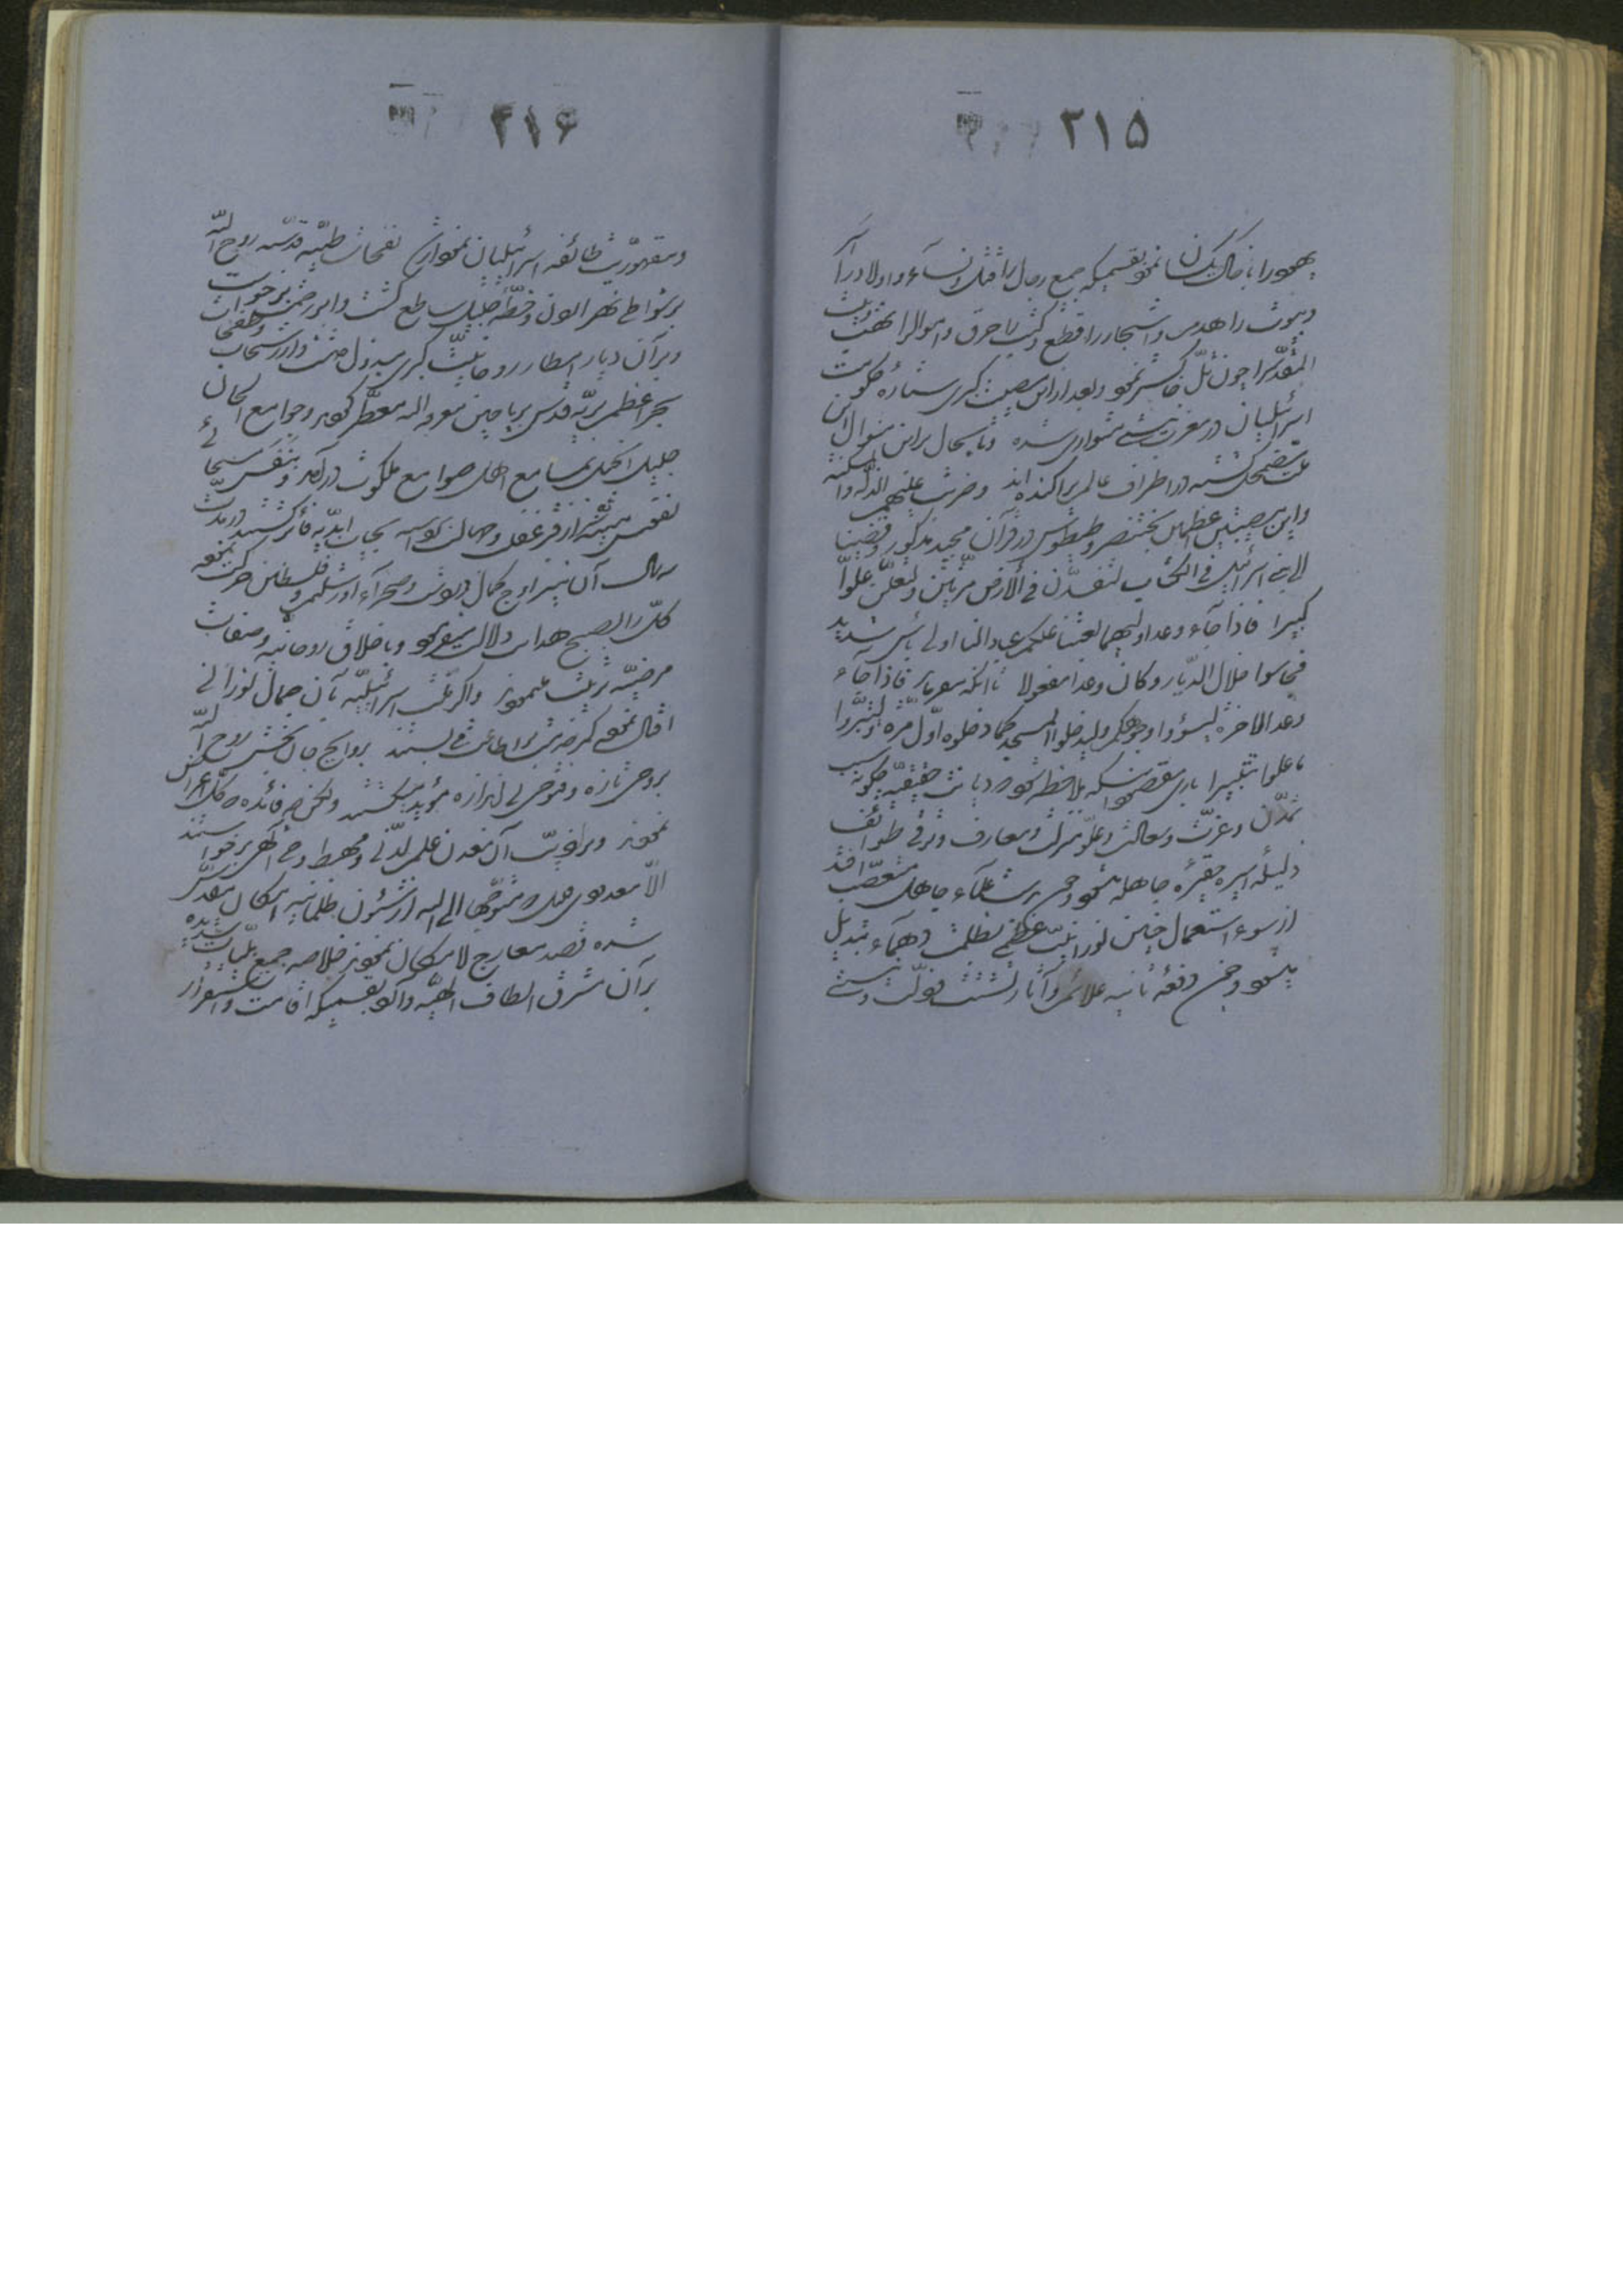 ۲۱۵
یهود را با خاک یکسان نمود بقسمیکه جمیع رجال را قتل و نساء و اولاد را
و بیوت را هدم و اشجار را قطع و کتب را حرق و اموال را نهب و بیت
المقدس را چون تلّ خاکستر نمود و بعد از این مصیبت کبری ستاره حکومت
اسرائیلیان در مغرب نیستی متواری شده و تا بحال بر این منوال این
ملت مضمحل گشته و در اطراف عالم پراکنده‌اند و ضربت علیهم الذلّة و المسکنة
و این مصیبتین عظیمین بختنصر و طیطوس در قرآن مجید مذکور و قضینا
الی بنی اسرائیل فی الکتاب لتفسدنّ فی الأرض مرّتین و لتعلنّ علوّاً
کبیرا فاذا جآء وعد اولیهما بعثنا علیکم عباداً لنا اولی بأس شدید
فجاسوا خلال الدّیار و کان وعدا مفعولا تا آنکه میفرماید فاذا جآء
وعد الاخرة لیسؤوا وجوهکم و لیدخلوا المسجد کما دخلوه اوّل مرّة و لیتبّروا
ما علوا تتبیرا باری مقصود اینکه ملاحظه شود دیانت حقیقیّه چگونه سبب
تمدّن و عزّت و سعادت و علوّ منزلت و معارف و ترقّی طوائف
ذلیله اسیره حقیره جاهله میشود و چون بدست علمآء جاهل متعصّب افتد
از سوء استعمال چنین نورانیّت عظمی بظلمت دهمآء تبدیل
میشود و چون دفعه ثانیه علائم و آثار تشتّت و ذلّت و نیستی
۲۱۶
و مقهوریّت طائفه اسرائیلیان نمودار شد نفحات طیّبه قدسیّه روح اللّه
بر شواطی نهر اردن و خطّه جلیل ساطع گشت و ابر رحمت برخواست
و بر آن دیار امطار روحانیّت کبری مبذول داشت و از رشحات و طفحات
بحر اعظم برّیه قدس بریاحین معرفة اللّه معطّر گردید و جوامع الحان
جلیل انجیل بمسامع اهل صوامع ملکوت در آمد و بنفس مسیحائی
نفوس میّته از قبر غفلت و جهالت محشور بحیات ابدیّه فائز گشتند در مدّت
سه سال آن نیّر اوج کمال در دشت و صحراء اورشلیم و فلسطین حرکت نموده
کلّ را بصبح هدایت دلالت میفرمود و باخلاق روحانیّه و صفات
مرضیّه تربیت مینمود و اگر ملّت اسرائیلیّه بآن جمال نورانی
اقبال نموده کمر خدمت بر اطاعت می بستند بروایح جان بخش روح اللّه
بروحی تازه و فتوحی بی اندازه مؤیّد میگشتند ولکن چه فائده که کلّ اعراض
نمودند و بر اذیّت آن معدن علم لدنّی و مهبط وحی الهی برخواستند
الّا معدودی قلیل که متوجّهاً الی اللّه از شئون ظلمانیّه امکان مقدّس
شده قصد معارج لامکان نمودند خلاصه جمیع بلیّات شدیده
بر آن مشرق الطاف الهیّه وارد بقسمیکه اقامت و استقرار